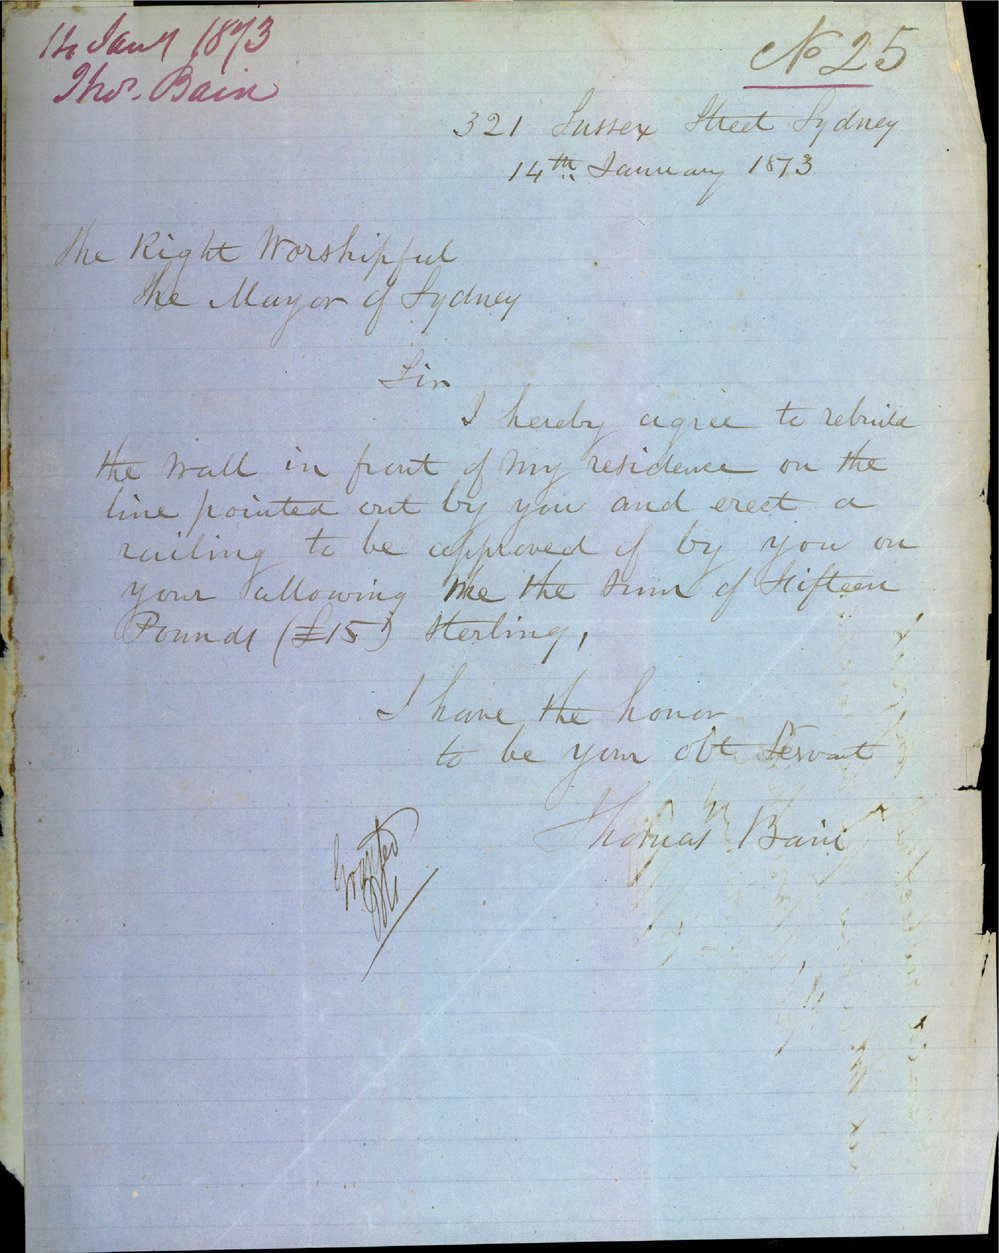 14 Jany 1873
Thos. Bain
No 25
321 Sussex Street Sydney
14th January 1873
The Right Worshipful
The Mayor of Sydney
Sir
I hereby agree to rebuild
the wall in front of my residence on the
line pointed out by you and erect a
railing to be approved of by you on
your allowing me the sum of Fifteen
Pounds (£15) Sterling,
I have the honor
to be your obt Servant
Thomas Bain
Granted